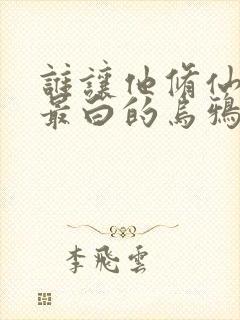 誰讓他脩仙
最白的烏鴉
李飛雲